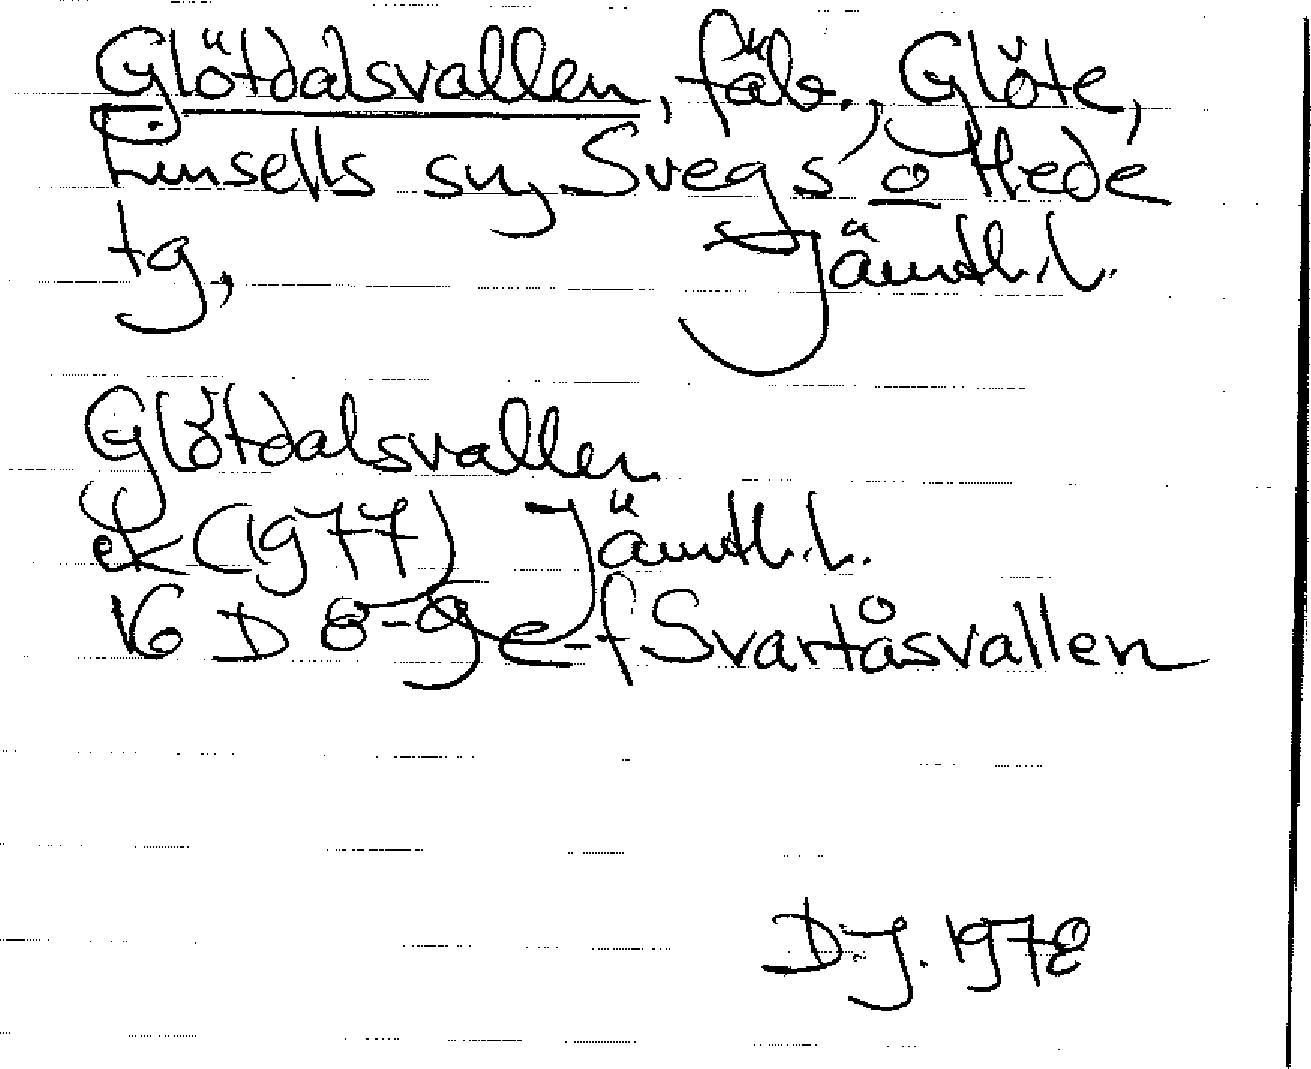 Glötdalsvallen, fäb., Glöte,
Linsells sn, Svegs o Hede
tg, Jämtl.l.
Glötdalsvallen
ek (1977) Jämtl.l.
16 D 8-9 e-f Svartåsvallen
DJ. 1978